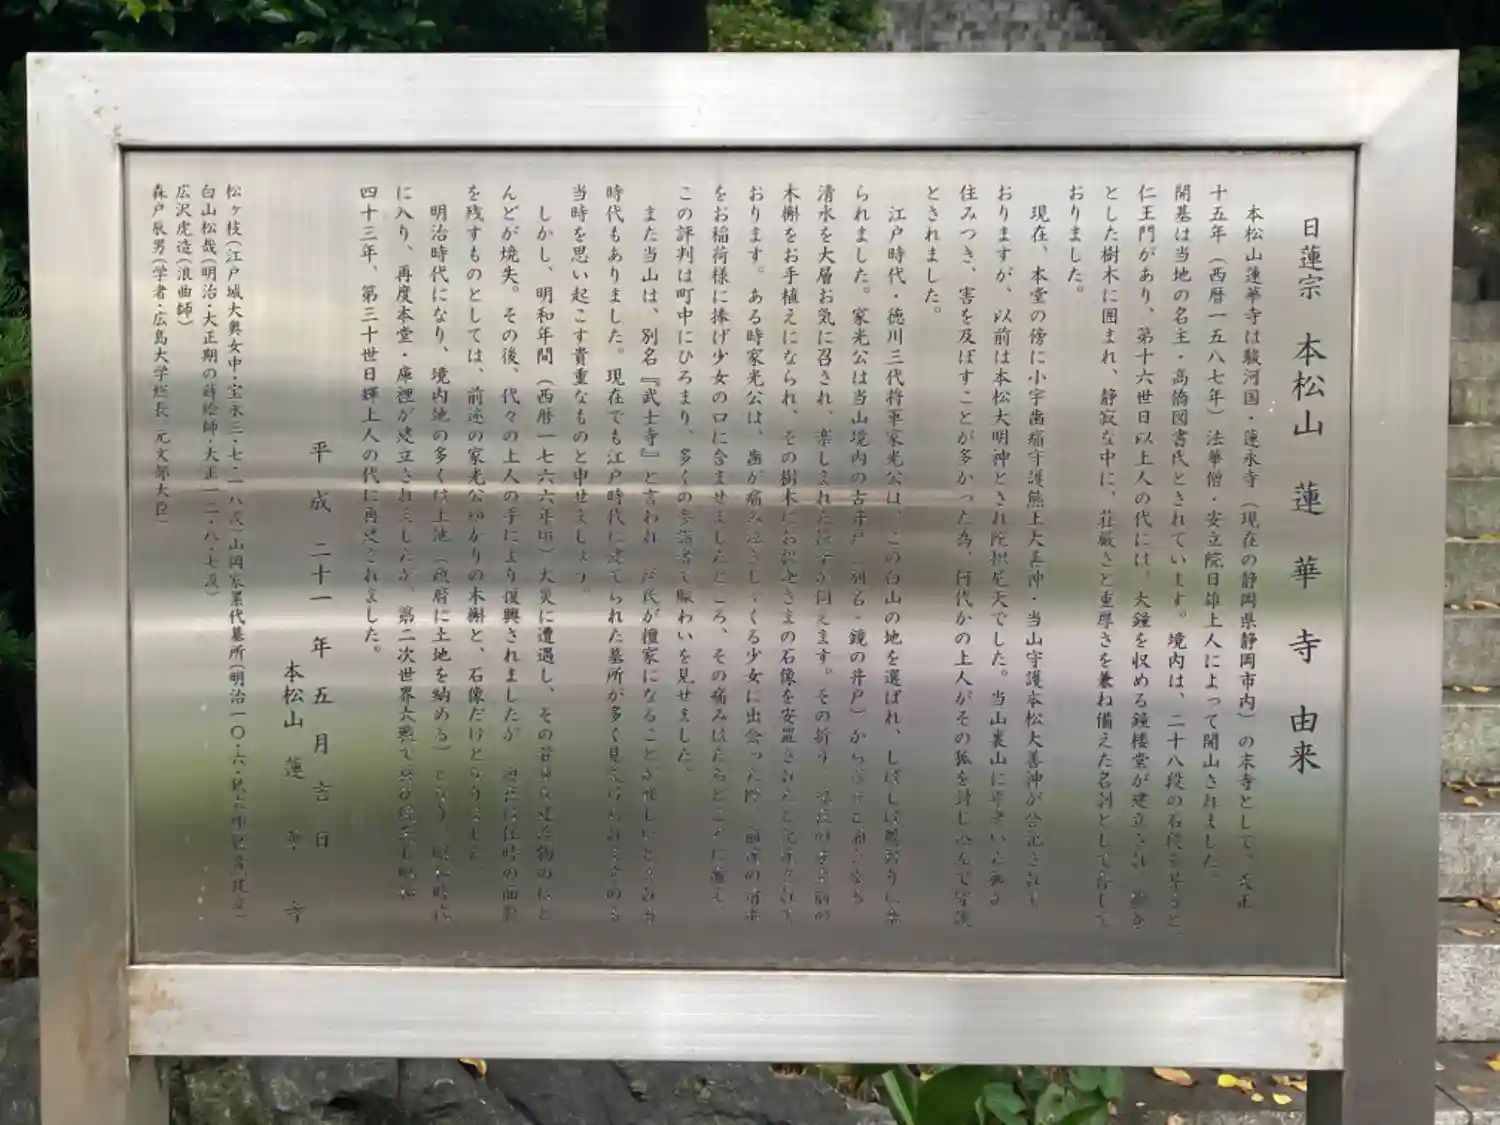 日蓮宗 本松山 蓮華寺 由来
本松山蓮華寺は駿河国・蓮永寺（現在の静岡県静岡市内）の末寺として、天正
十五年（西暦一五八七年）法華僧・安立院日雄上人によって開山されました。
開基は当地の名主・高橋図書氏とされています。境内は、二十八段の石段を昇ると、
仁王門があり、第十六世日以上人の代には、大鐘を収める鐘楼堂が建立され
とした樹木に囲まれ、静寂な中に、荘厳さと重厚さを兼ね備えた名刹として存して
おりました。
現在、本堂の傍に小宇歯痛守護熊王大善神・当山守護本松大善神が合祀されて
おりますが、以前は本松大明神とされ陀枳尼天でした。当山裏山に年老いた狐が
住みつき、害を及ぼすことが多かった為、何代かの上人がその狐を封じ込んで守護
ときれました。
江戸時代・徳川三代将軍家光公は、この白山の地を選ばれ、しばしば鷹狩りに来
られました。家光公は当山境内の古井戸（別名・鏡の井戸）から
清水を大層お気に召され、楽しまれた様子が伺えます。その折り
木槲をお手植えになられ、その樹木にお釈迦さまの石像を安置されたと記述されて
おります。ある時家光公は、歯が痛み泣きじゃくる少女に出会った際、
をお稲荷様に捧げ少女の口に含ませましたところ、その痛みはたちどころに癒え、
この評判は町中にひろまり、多くの参詣者で賑わいを見せました。
また当山は、別名『武士寺』と言われ、庶民が檀家になることが難しいとされた
時代もありました。現在でも江戸時代に建てられた墓所が多く見受けられますのも
当時を思い起こす貴重なものと申せましょう。
しかし、明和年間（西暦一七六六年頃）大災に遭遇し、その 建造物のほと
んどが焼失。その後、代々の上人の手により復興されましたが、 往時の面影
を残すものとしては、前述の家光公ゆかりの木槲と、石像だけとなりました。
明治時代になり、境内地の多くは上地（政府に土地を納める）となり、昭和時代
に入り、再度本堂・庫裡が建立されましたが、第二次世界大戦で
四十三年、第三十世日輝上人の代に再建されました。
平成二十一年五月吉日
本松山 蓮華寺
松ヶ枝（江戸城大奥女中・宝永三・七・一八歿）山岡家累代墓所（明治一〇・六・
白山松哉（明治・大正期の蒔絵師・大正一二・八・七歿）
広沢虎造（浪曲師）
森戸辰男（学者・広島大学総長 元文部大臣）